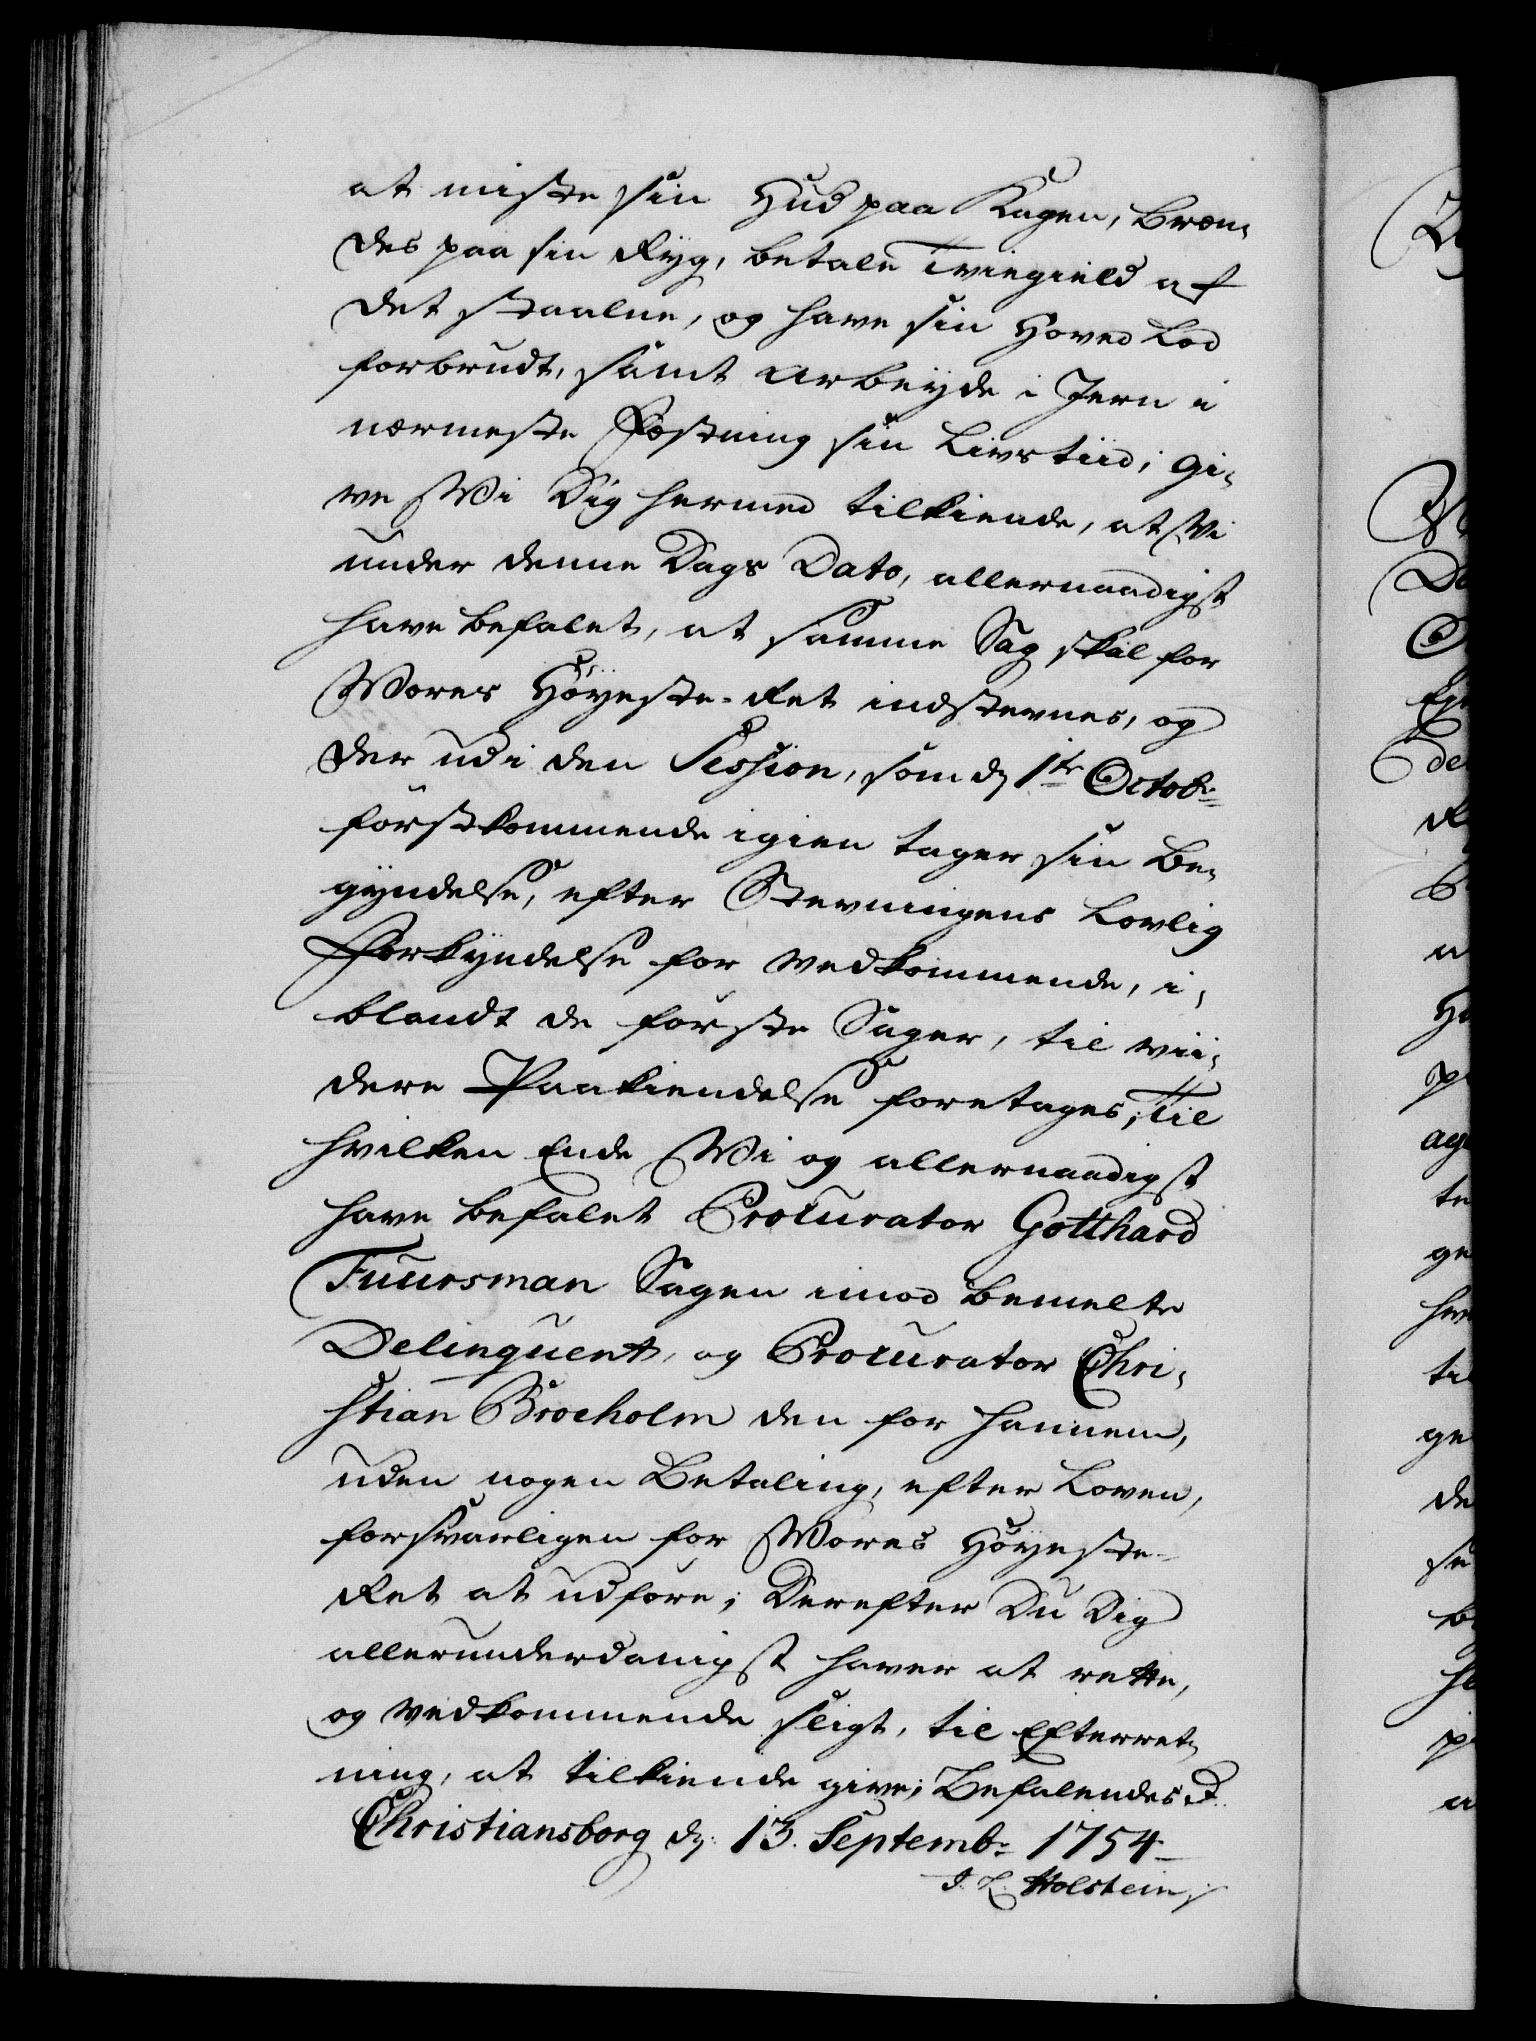 at miste sin Hud paa Kagen, bræn,
des paa sin Ryg, betale Tviegield af
det staalne, og have sin Hoved Lod
forbrudt, samt arbeyde i Jern i
nærmeste Fæstning sin Livs tiid; gi,
ve Wi Dig hermed tilkiende, at Vi
under denne Dags Dato, allernaadigst
have befalet, at samme Sag skal for
Wores Höyeste-Ret indstevnes, og
der udi den Session, som dζ 1te Octobr:
förstkommende igien tager sin Be,
gyndelse, efter Stevningens lovlig
Forkyndelse for vedkommende, i,
blandt de förste Sager, til vii,
dere Paakiendelse foretages; Til
hvilken Ende Wi og allernaadigst
have befalet Procurator Gotthard
Fuursman Sagen imod bemelte
Delinquent, og Procurator Chri,
stian Broeholm den for hannem,
uden nogen Betaling, efter Loven,
forsvarligen for Wores Höyeste-
Ret at udföre; Derefter Du Dig
allerunderdanigst haver at rette,
og vedkommende sligt, til Efterret,
ning, at tilkiende give; Befalendes d.
Christiansborg dζ: 13. Septembr: 1754
J. L. Holstein
Eft
De
de
ge
ag
te
hv
til
ge
de
se